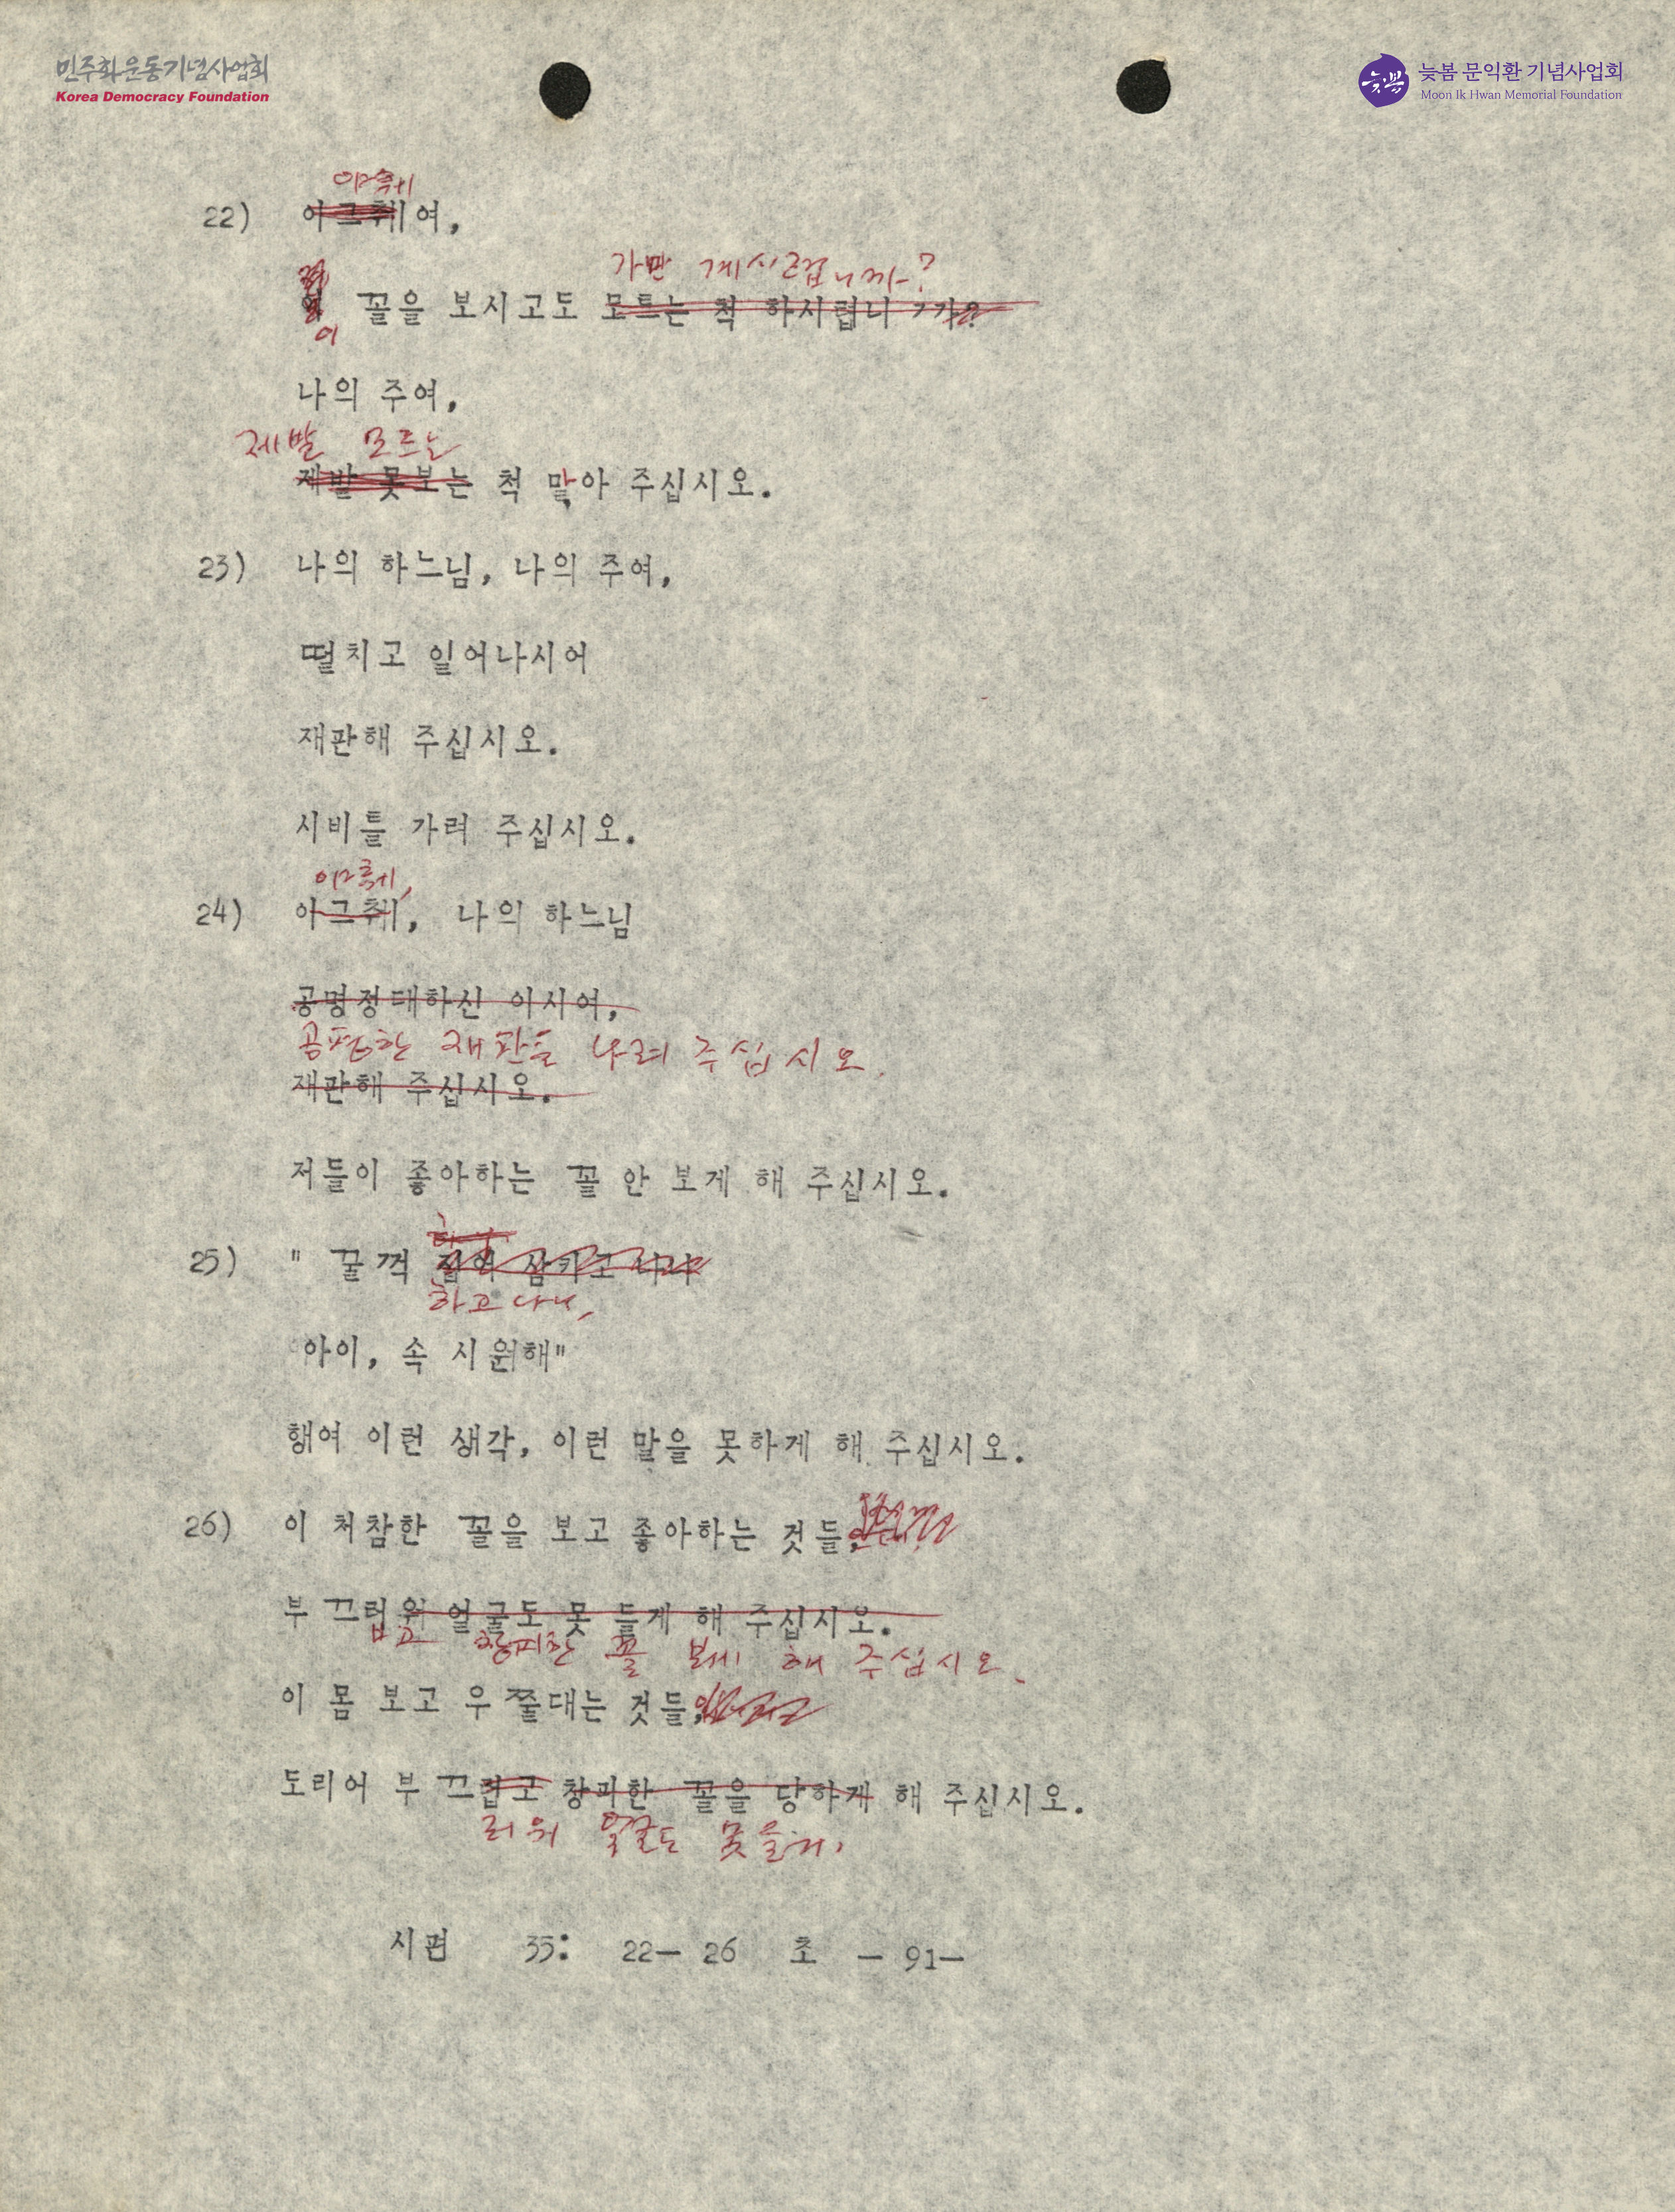 민주화운동기념사업회
Korea Democracy Foundation
늦봄
늦봄 문익환 기념사업회
Moon Ik Hwan Memorial Foundation
야훼
22) 야그훼여,
가만 계시렵니까?
꼴을 보시고도 모르는 척 하시렵니까?
이
나의 주여,
제발 모르는
제발 못보는 척 말아 주십시오.
23) 나의 하느님, 나의 주여,
떨치고 일어나시어
재판해 주십시오.
시비를 가려 주십시오.
야훼,
24) 야그훼, 나의 하느님
공명정대하신 이시여,
공평한 재판을 내려 주십시오.
재판해 주십시오.
저들이 좋아하는 꼴 안 보게 해 주십시오.
25) " 꿀꺽 집어 삼키고 나니
하고 나니,
아이, 속 시원해"
행여 이런 생각, 이런 말을 못하게 해 주십시오.
26) 이 처참한 꼴을 보고 좋아하는 것들,
부끄럽워 얼굴도 못 들게 해 주십시오.
고 창피한 꼴 보게 해 주십시오.
이 몸 보고 우쭐대는 것들,
도리어 부끄럽고 창피한 꼴을 당하게 해 주십시오.
러워 얼굴도 못들게,
시편 35: 22- 26 초 - 91-